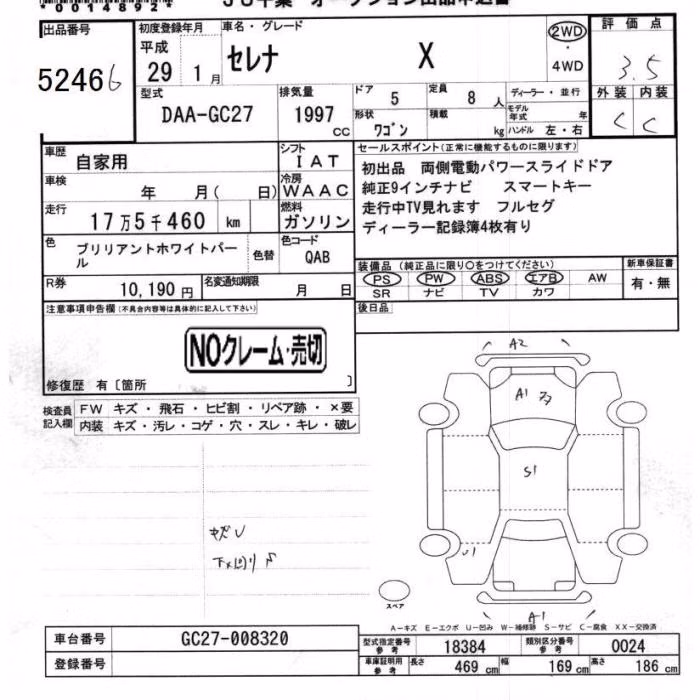 *00148921*
JU千葉 オークション出品申込書
出品番号
52466
初度登録年月
平成
29 1月
車名・グレード
セレナ X
2WD
・
4WD
評価点
3.5
外装 内装
C C
型式
DAA-GC27
排気量
1997 CC
ドア
5
定員
8 人
ディーラー・並行
モデル年式 年
形状
ワゴン
積載
kg
ハンドル 左・右
車歴
自家用
シフト
IAT
車検
年 月( 日)
冷房
WAAC
走行
17万5千460 km
燃料
ガソリン
色
ブリリアントホワイトパール
色替
色コード
QAB
R券
10,190円
名変通知期限
月 日
セールスポイント(正常に機能するものに限ります)
初出品 両側電動パワースライドドア
純正9インチナビ スマートキー
走行中TV見れます フルセグ
ディーラー記録簿4枚有り
装備品(純正品に限り○をつけてください)
PS PW ABS エアB AW
SR ナビ TV カワ
新車保証書
有・無
後日品
注意事項申告欄(不具合内容等は具体的に記入して下さい)
NOクレーム・売切
修復歴 有〔箇所 〕
検査員記入欄
FW キズ・飛石・ヒビ割・リペア跡・×要
内装 キズ・汚レ・コゲ・穴・スレ・キレ・破レ
A2
A1
S1
U1
A1
スペア
A-キズ E-エクボ U-凹み W-補修跡 S-サビ C-腐食 XX-交換済
車台番号
GC27-008320
登録番号
型式指定番号 参考
18384
類別区分番号 参考
0024
車庫証明用 参考
長さ 469 cm
幅 169 cm
高さ 186 cm